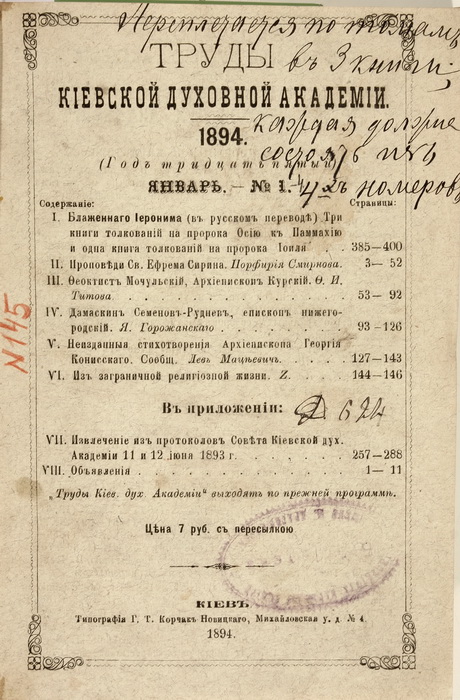 Переплетается по томамъ
ТРУДЫ въ 3 книги;
КІЕВСКОЙ ДУХОВНОЙ АКАДЕМІИ.
1894.
каждая должна
состоять изъ
(Годъ тридцать пятый)
ЯНВАРЬ. — № 1.
4-хъ номеровъ
Содержаніе: Страницы:
I. Блаженнаго Іеронима (въ русскомъ переводѣ) Три
книги толкованій на пророка Осію къ Паммахію
и одна книга толкованій на пророка Іоиля . . 385—400
II. Проповѣди Св. Ефрема Сирина. Порфирія Смирнова. 3— 52
III. Ѳеоктист Мочульскій, Архіепископ Курскій. Ѳ. И.
Титова. . . . . . . . . . . . . . . . 53— 92
IV. Дамаскин Семенов-Руднев, епископ нижего-
родскій. Я. Горожанскаго . . . . . . . . 93—126
V. Неизданныя стихотворенія Архіепископа Георгія
Конисскаго. Сообщ. Левъ Мацѣевичъ. . . . . . 127—143
VI. Изъ заграничной религіозной жизни. Z. . . . . 144—146
Въ приложеніи:
624
VII. Извлеченіе изъ протоколовъ Совѣта Кіевской дух.
Академіи 11 и 12 іюня 1893 г. . . . . . . . 257—288
VIII. Объявленія . . . . . . . . . . . . . 1— 11
„Труды Кіев. дух Академіи" выходятъ по прежней программѣ.
Цѣна 7 руб. съ пересылкою
КІЕВЪ.
Типографія Г. Т. Корчакъ Новицкаго, Михайловская у. д. № 4.
1894.
N145